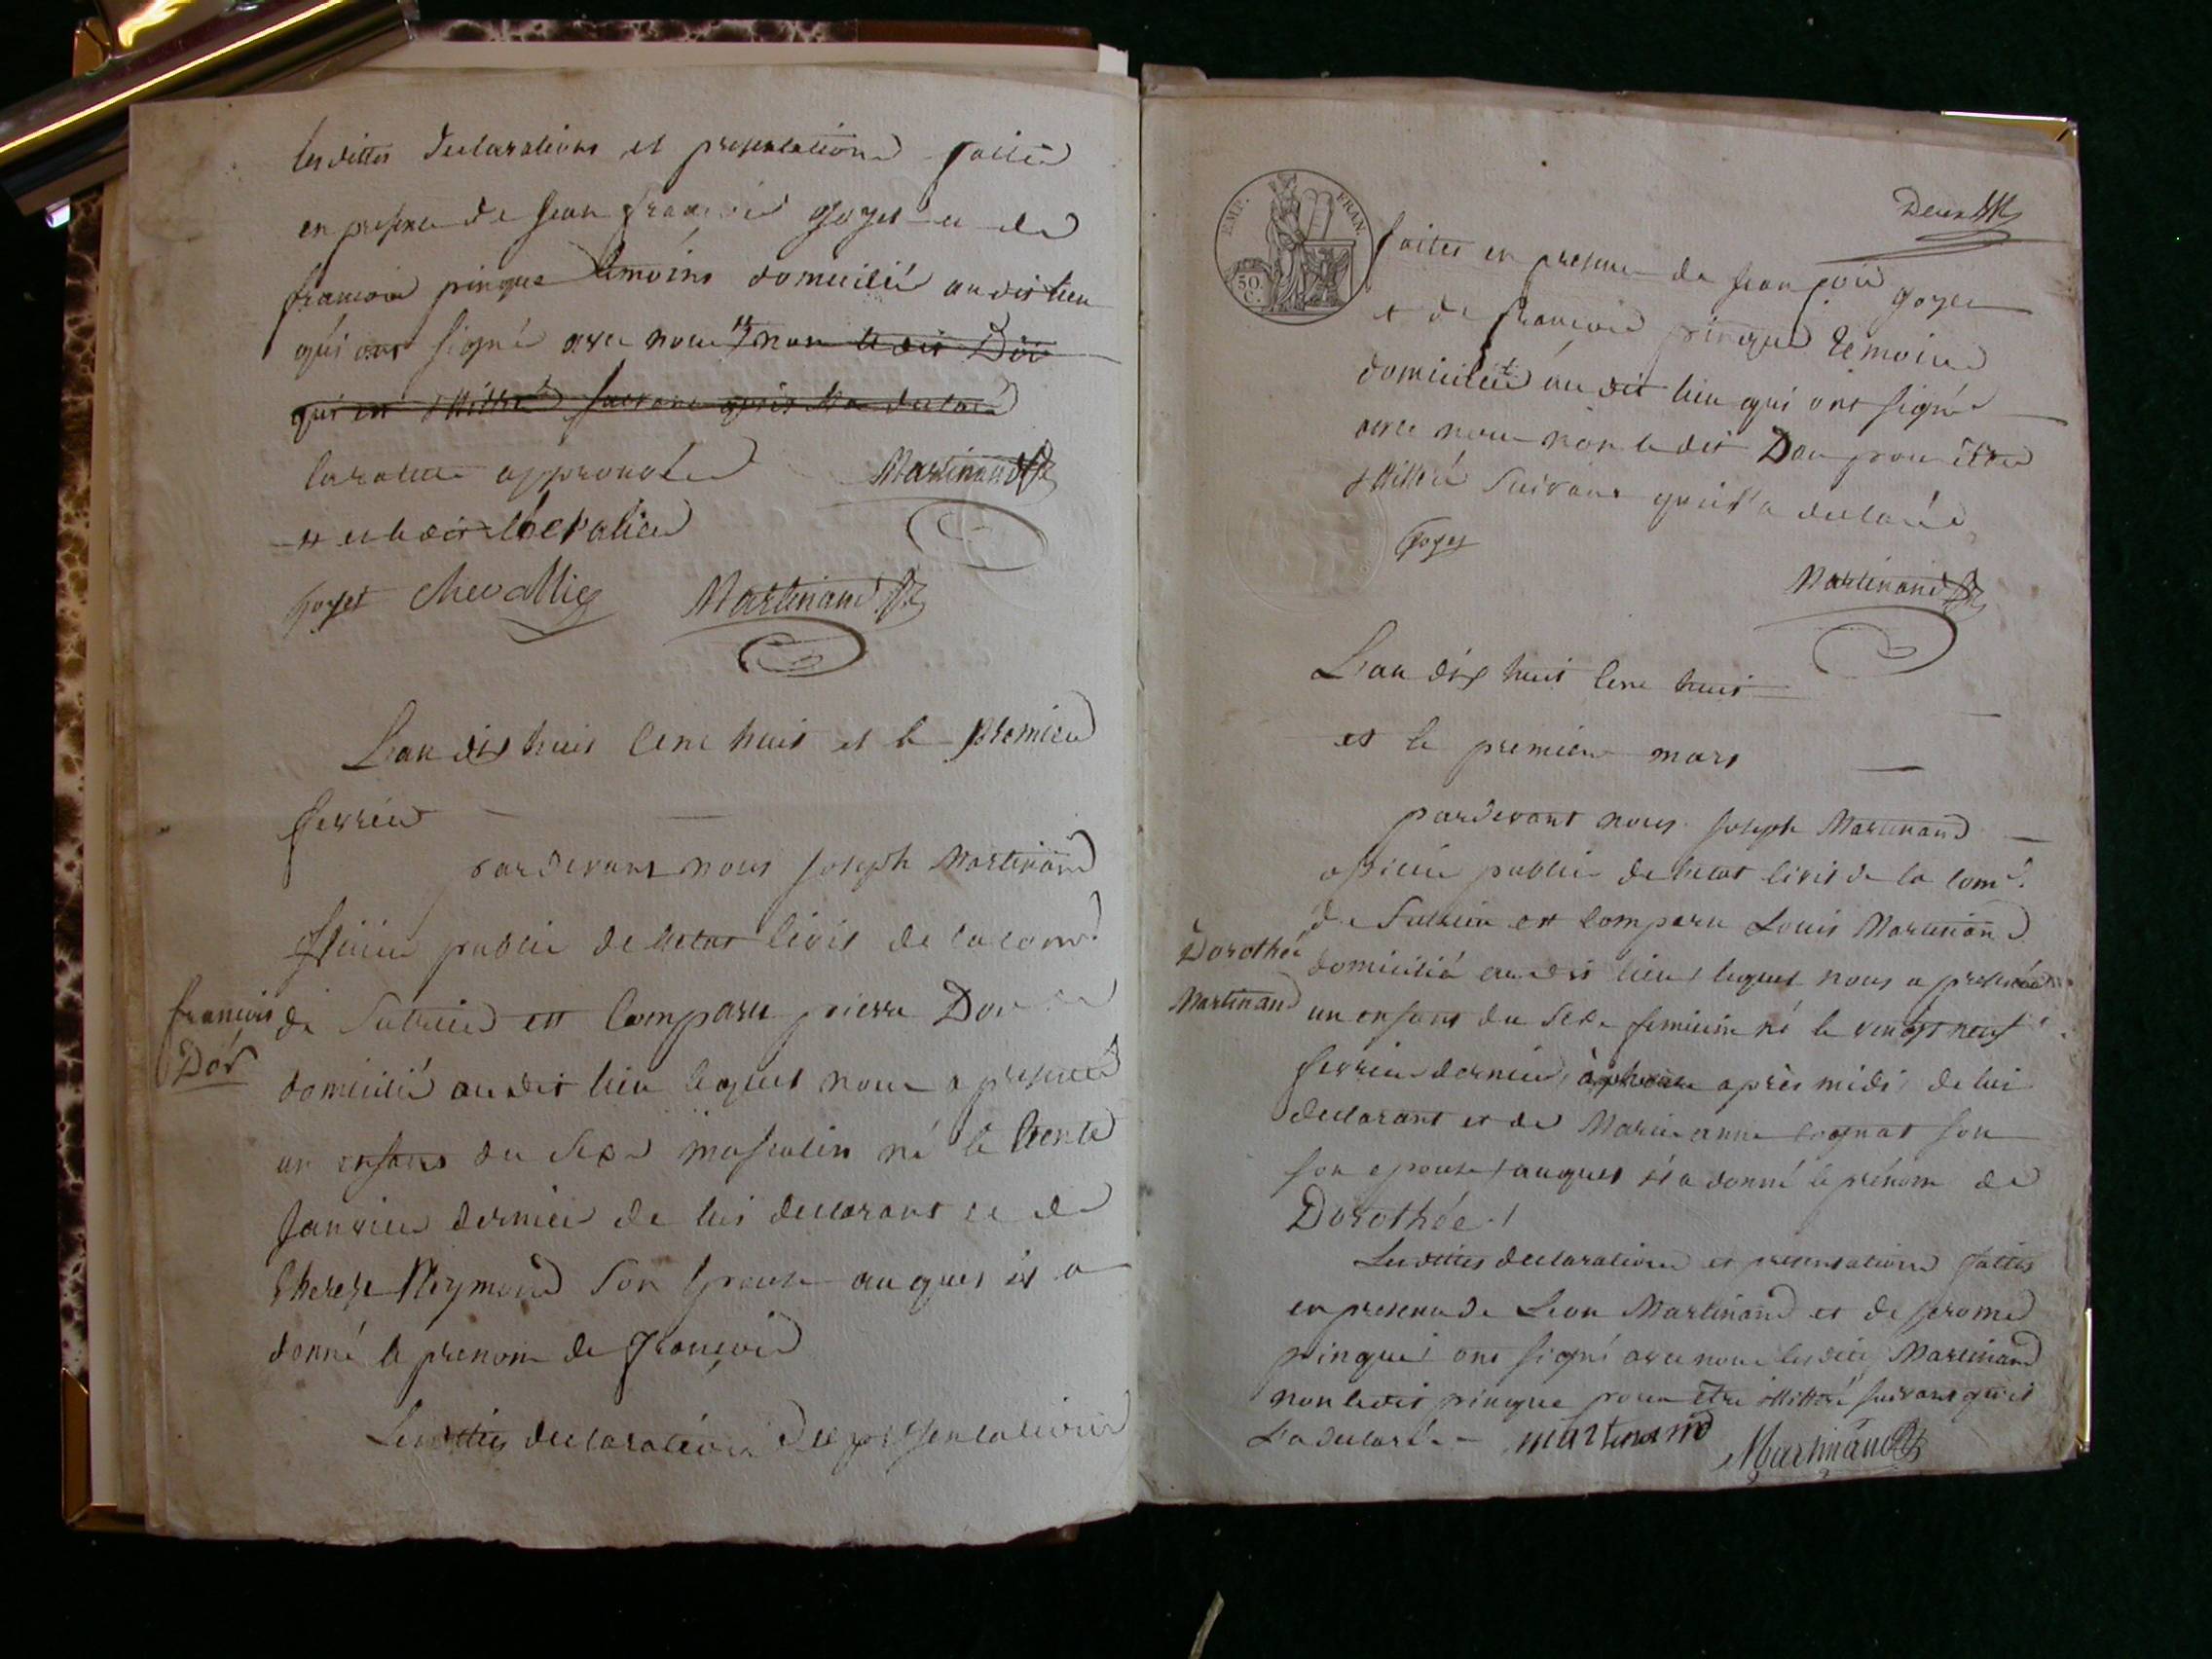 lesdittes declarations et presentations faites
en presence de Jean François Goyet et de
francois pingue temoins domicilié audit lieu
qui ont signé avec nous # non le dit Dor
qui est illitteré suivant quil l'a declaré
la rature approuvée Martinand
# et le dit Chevalier
Goyet chevallier Martinand
L'an dix huit cent huit et le premier
fevrier
pardevant nous Joseph Martinand
officier public de l'etat civil de la com.
francois
Dor
de Sutrieu est comparu pierre Dor
domicilié audit lieu lequel nous a presenté
un enfant du sexe masculin né le trente
Janvier dernier de lui declarant et de
therese Reymond son Epouse auquel il a
donné le prenom de François
Lesdittes declarations et presentations
EMP. FRAN.
50.
C.
faites en presence de françois Goyet
et de François pingue temoins
domiciliés audit lieu qui ont signé
avec nous non le dit Dor pour être
illitteré suivant qu'il l'a declaré
Goyet
Martinand
L'an dix huit cent huit
et le premier mars
pardevant nous Joseph Martinand
officier public de l'etat civil de la com.
Dorothée
Martinand
de Sutrieu est comparu Louis Martinand
domicilié audit lieu lequel nous a presenté
un enfant du sexe feminin né le vingt neuf
fevrier dernier après midi de lui
declarant et de Marie anne Cognat son
son epouse auquel il a donné le prénom de
Dorothée.
Lesdittes declarations et presentations faittes
en presence de Leon Martinand et de Jerome
pingue ont signé avec nous lesdits Martinand
non ledit pingue pour être illitteré suivant qu'il
L'a declaré. martinand Martinand